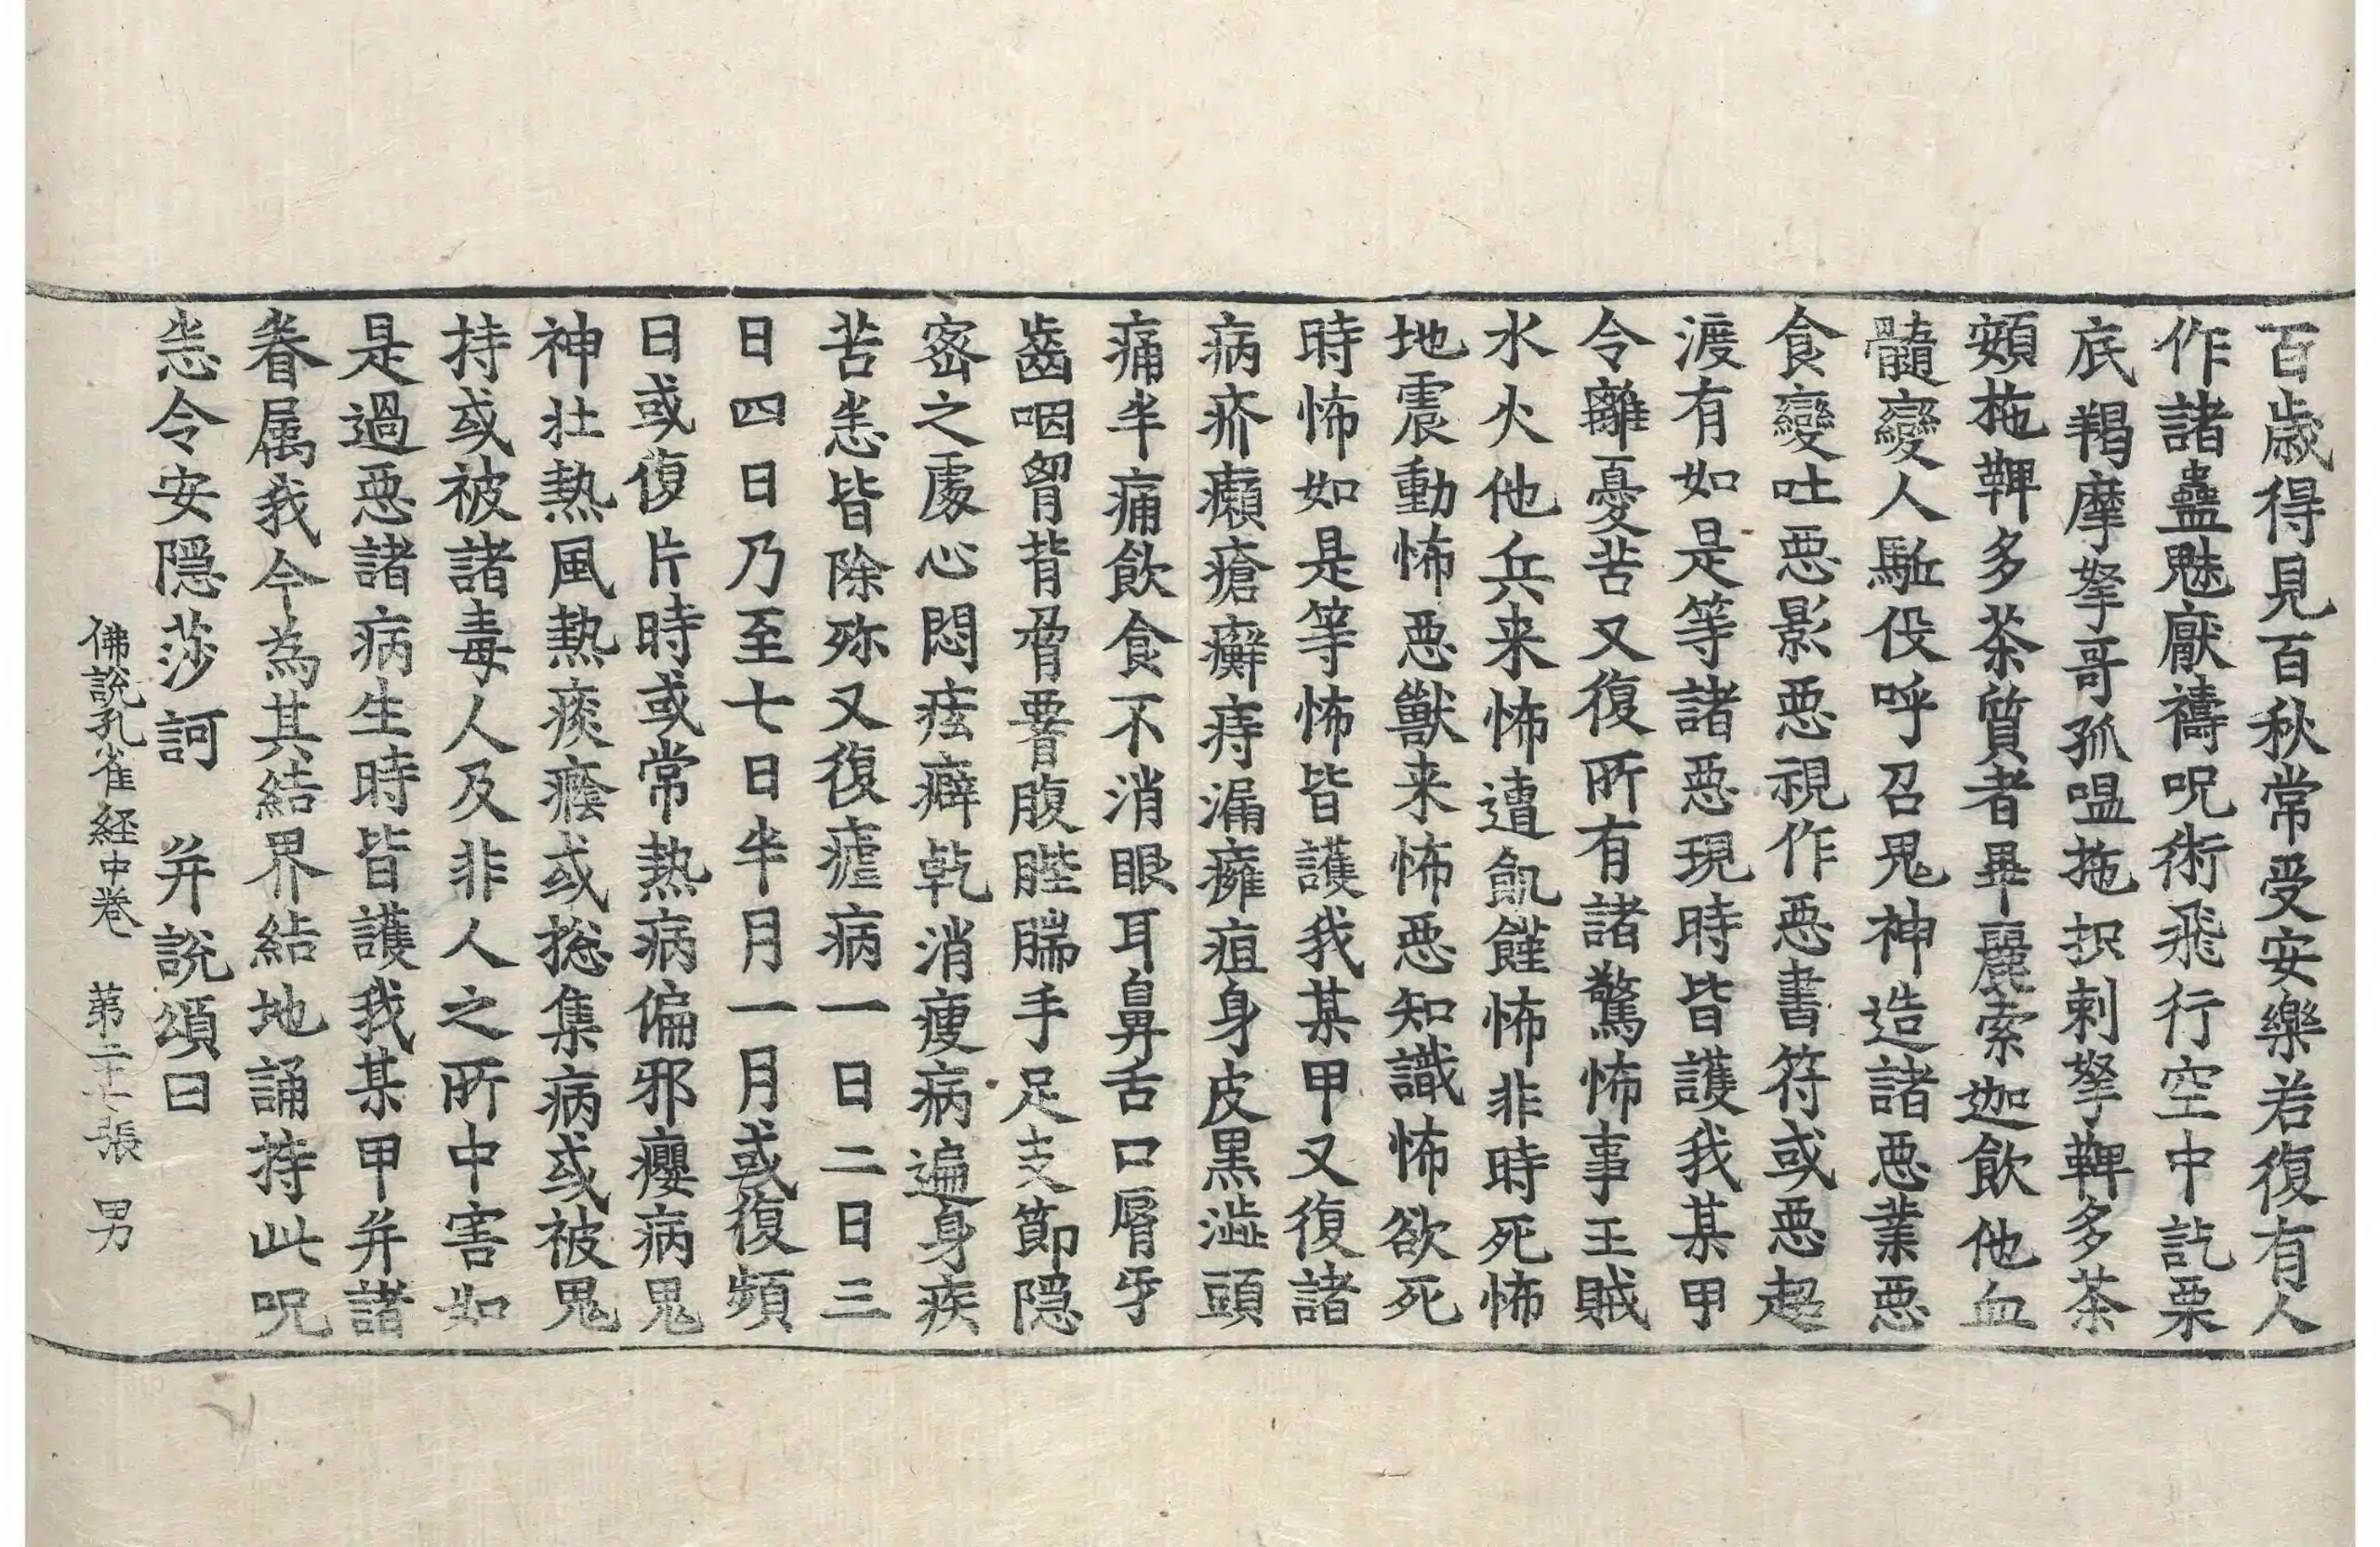 百歳得見百秋常受安樂若復有人
作諸蠱魅厭禱呪術飛行空中訖栗
底羯摩拏哥孤嗢拖抧剌拏鞞多荼
頞拖鞞多荼質者畢麗索迦飲他血
髓變人駈役呼召鬼神造諸惡業惡
食變吐惡影惡視作惡書符或惡超
渡有如是等諸惡現時皆護我某甲
令離憂苦又復所有諸驚怖事王賊
水火他兵来怖遭飢饉怖非時死怖
地震動怖惡獸来怖惡知識怖欲死
時怖如是等怖皆護我某甲又復諸
病疥癩瘡癬痔漏癰疽身皮黒澁頭
痛半痛飲食不消眼耳鼻舌口脣牙
齒咽胷背脅䯒腹䏶腨手足支節隠
宻之處心悶痃癖乹消瘦病遍身疾
苦恙皆除殄又復瘧病一日二日三
日四日乃至七日半月一月或復頻
日或復片時或常熱病偏邪癭病鬼
神壮熱風熱痰癊或揔集病或被鬼
持或被諸毒人及非人之所中害如
是過惡諸病生時皆護我某甲并諸
眷属我今為其結界結地誦持此呪
恙令安隠莎訶　并說頌曰
佛說孔雀経中巻　苐二十張　男